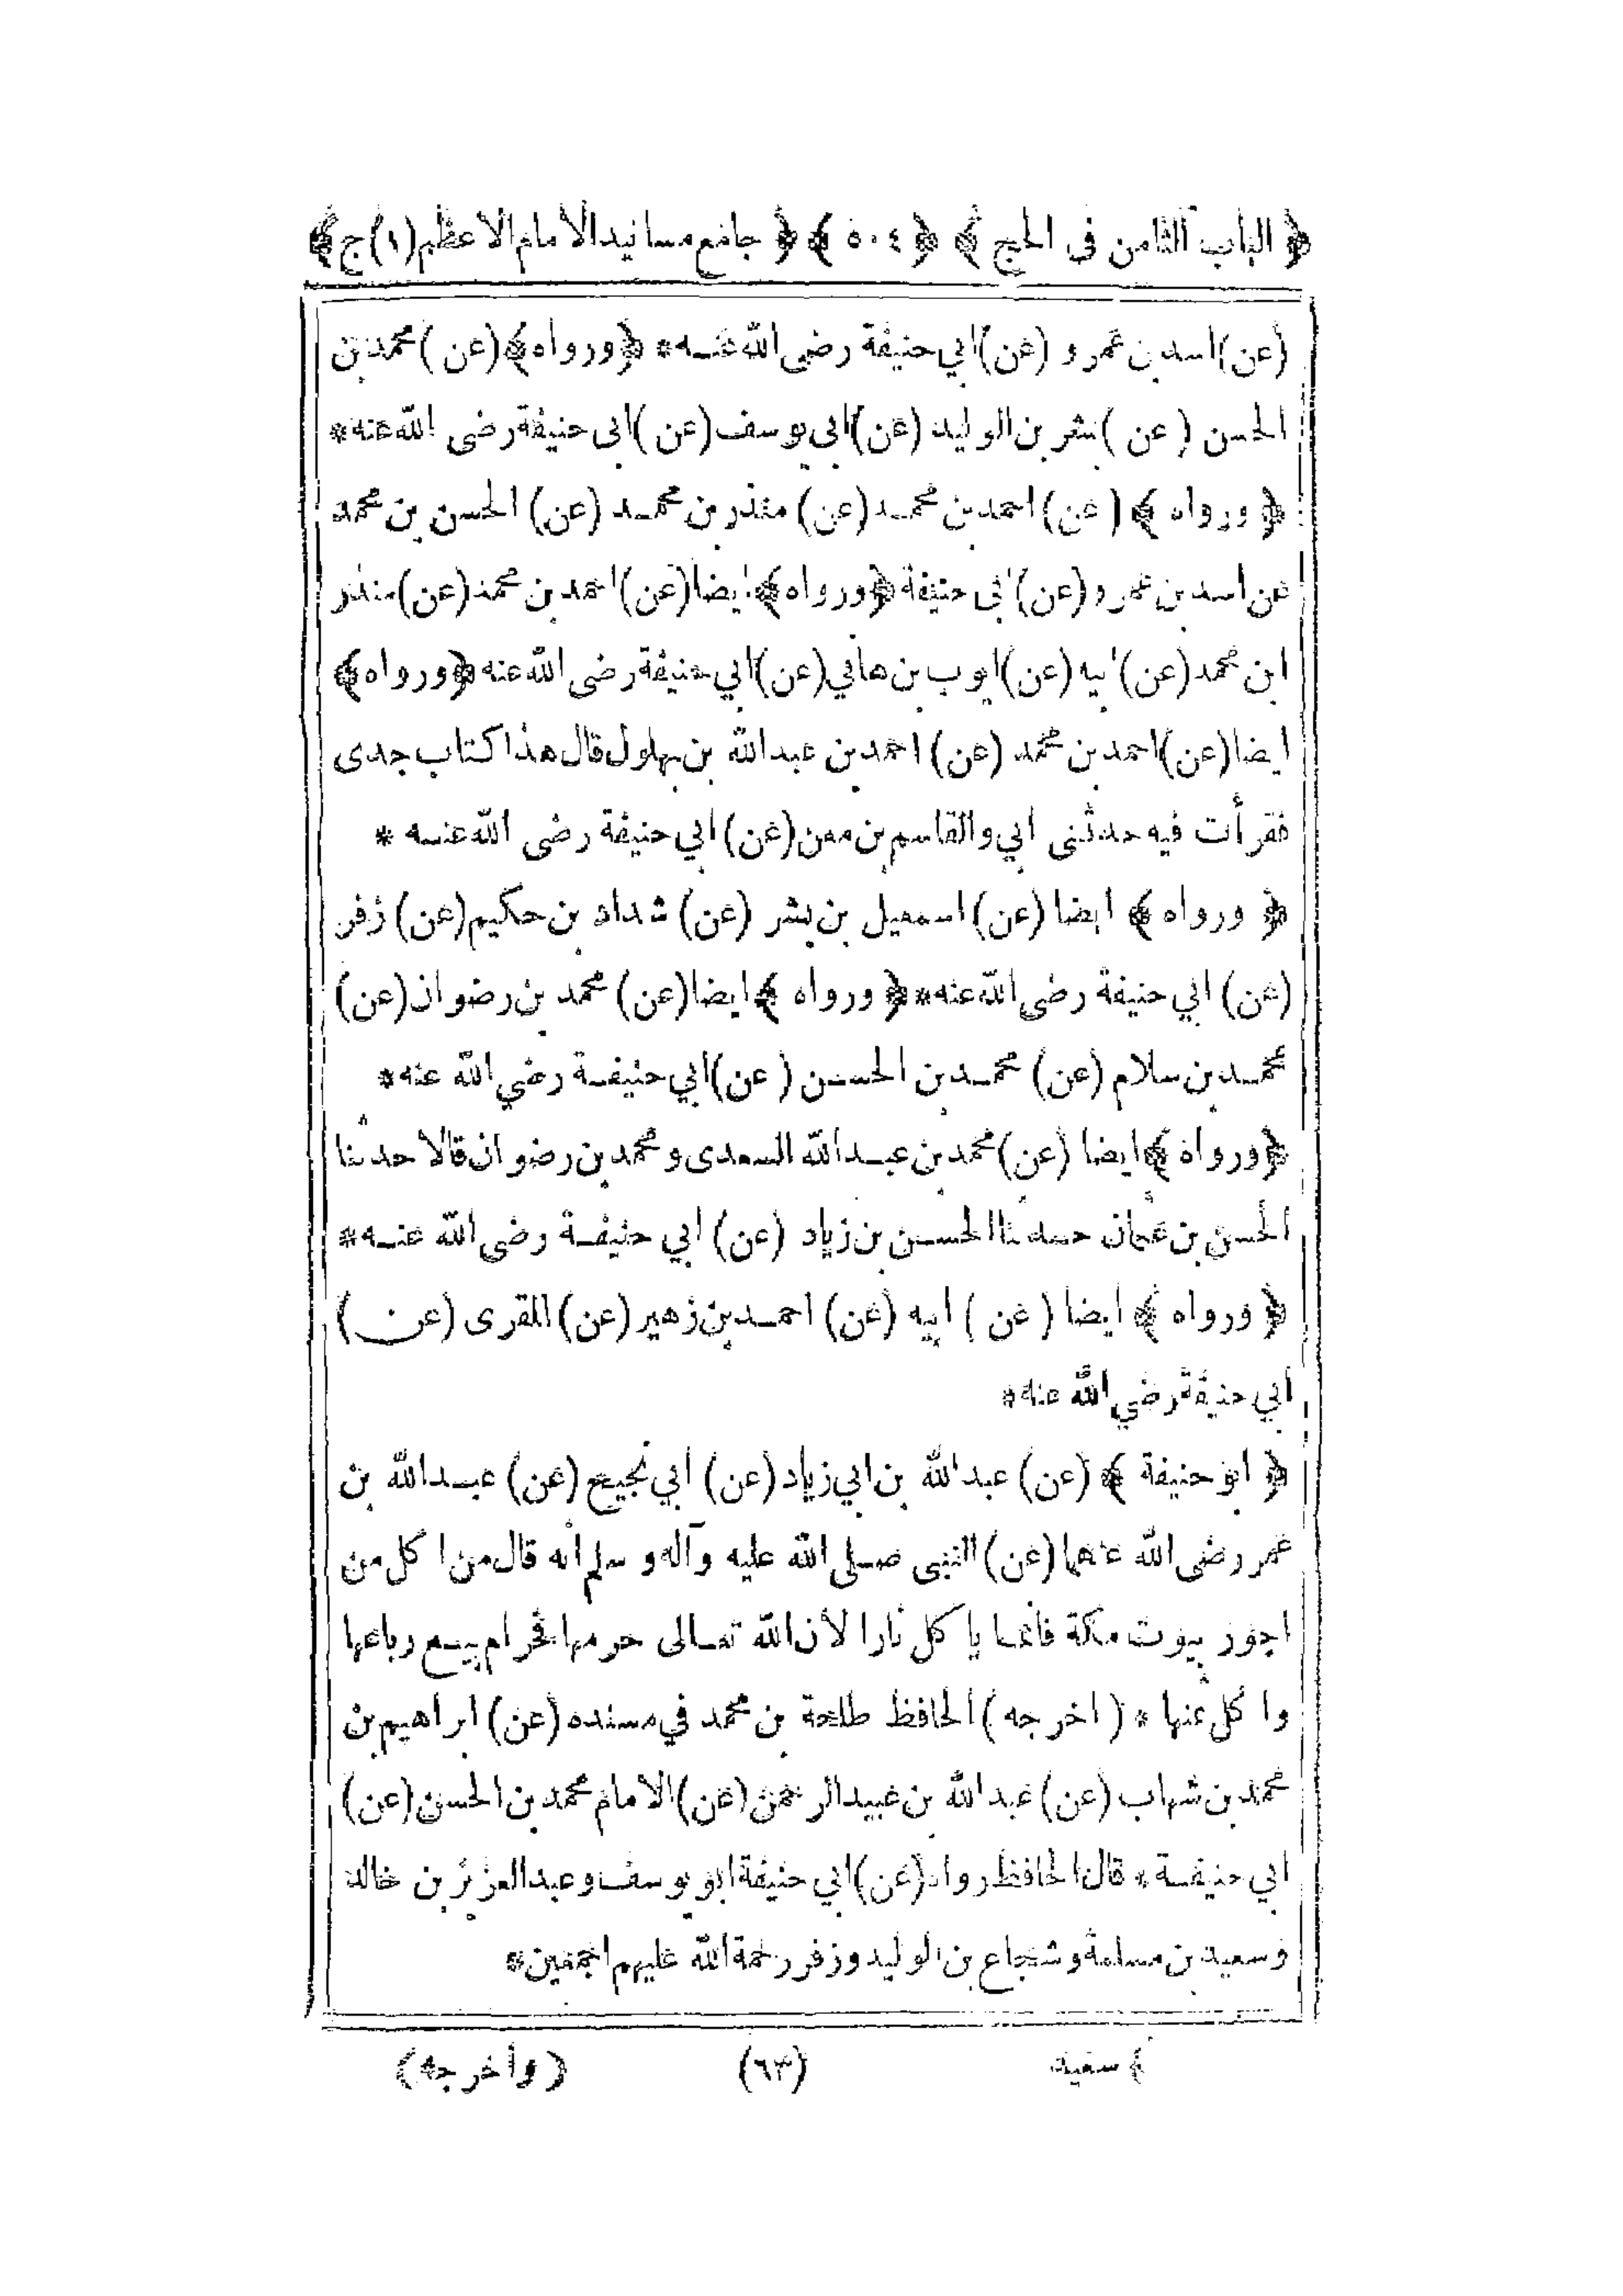 ﴿ الباب الثامن فى الحج ﴾ ﴿ ٥٠٤ ﴾ ﴿ جامع مسانيد الامام الاعظم (١) ج ﴾
(عن) اسد بن عمرو (عن) ابي حنيفة رضى الله عنه * ﴿ ورواه ﴾ (عن) محمد بن
الحسن (عن) بشر بن الوليد (عن) ابي يوسف (عن) ابى حنيفة رضى الله عنه *
﴿ ورواه ﴾ (عن) احمد بن محمد (عن) منذر بن محمد (عن) الحسن بن محمد
عن اسد بن عمرو (عن) ابى حنيفة ﴿ ورواه ﴾ ايضا (عن) احمد بن محمد (عن) منذر
ابن محمد (عن) ابيه (عن) ايوب بن هاني (عن) ابي حنيفة رضى الله عنه ﴿ ورواه ﴾
ايضا (عن) احمد بن محمد (عن) احمد بن عبد الله بن بهلول قال هذا كتاب جدى
فقرأت فيه حدثنى ابي والقاسم بن معن (عن) ابي حنيفة رضى الله عنه *
﴿ ورواه ﴾ ايضا (عن) اسمعيل بن بشر (عن) شداد بن حكيم (عن) زفر
(عن) ابي حنيفة رضى الله عنه * ﴿ ورواه ﴾ ايضا (عن) محمد بن رضوان (عن)
محمد بن سلام (عن) محمد بن الحسن (عن) ابي حنيفة رضي الله عنه *
﴿ ورواه ﴾ ايضا (عن) محمد بن عبد الله السعدى ومحمد بن رضوان قالا حدثنا
الحسن بن عثمان حدثنا الحسن بن زياد (عن) ابي حنيفة رضى الله عنه *
﴿ ورواه ﴾ ايضا (عن) ابيه (عن) احمد بن زهير (عن) المقرى (عن)
ابي حنيفة رضي الله عنه *
﴿ ابو حنيفة ﴾ (عن) عبد الله بن ابي زياد (عن) ابي نجيح (عن) عبد الله بن
عمر رضى الله عنهما (عن) النبى صلى الله عليه وآله وسلم انه قال من اكل من
اجور بيوت مكة فانما ياكل نارا لان الله تعالى حرمها فحرام بيع رباعها
واكل عنها * (اخرجه) الحافظ طلحة بن محمد في مسنده (عن) ابراهيم بن
محمد بن شهاب (عن) عبد الله بن عبيد الرحمن (عن) الامام محمد بن الحسن (عن)
ابي حنيفة * قال الحافظ رواه (عن) ابي حنيفة ابو يوسف وعبد العزيز بن خالد
وسعيد بن مسلمة وشجاع بن الوليد وزفر رحمة الله عليهم اجمعين *
(وأخرجه) (٦٣)